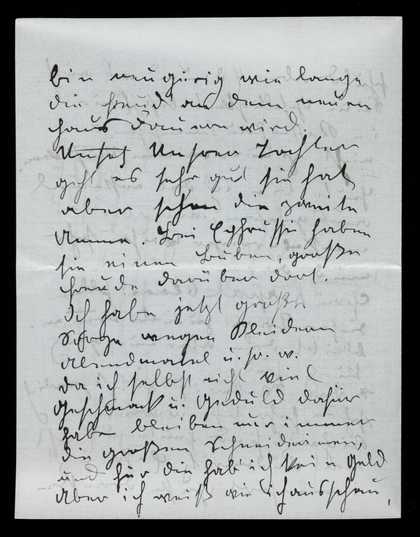 bin neugierig wie lange
die Freud an dem neuen
Haus dauern wird.
Unsre Unsrer Tochter
geht es sehr gut sie hat
aber schon die zweite
Amme. Bei Ephrussi haben
sie einen Buben, große
Freude darüber dort.
Ich habe jetzt große
Sorge wegen Kleidern
Abendmantel u. so. w.
da ich selbst nicht viel
Geschmack u. Geduld dafür
habe bleiben nur immer
die großen Schneiderinnen
und für die hab ich kein Geld
aber ich weiß wie ich ausschau,